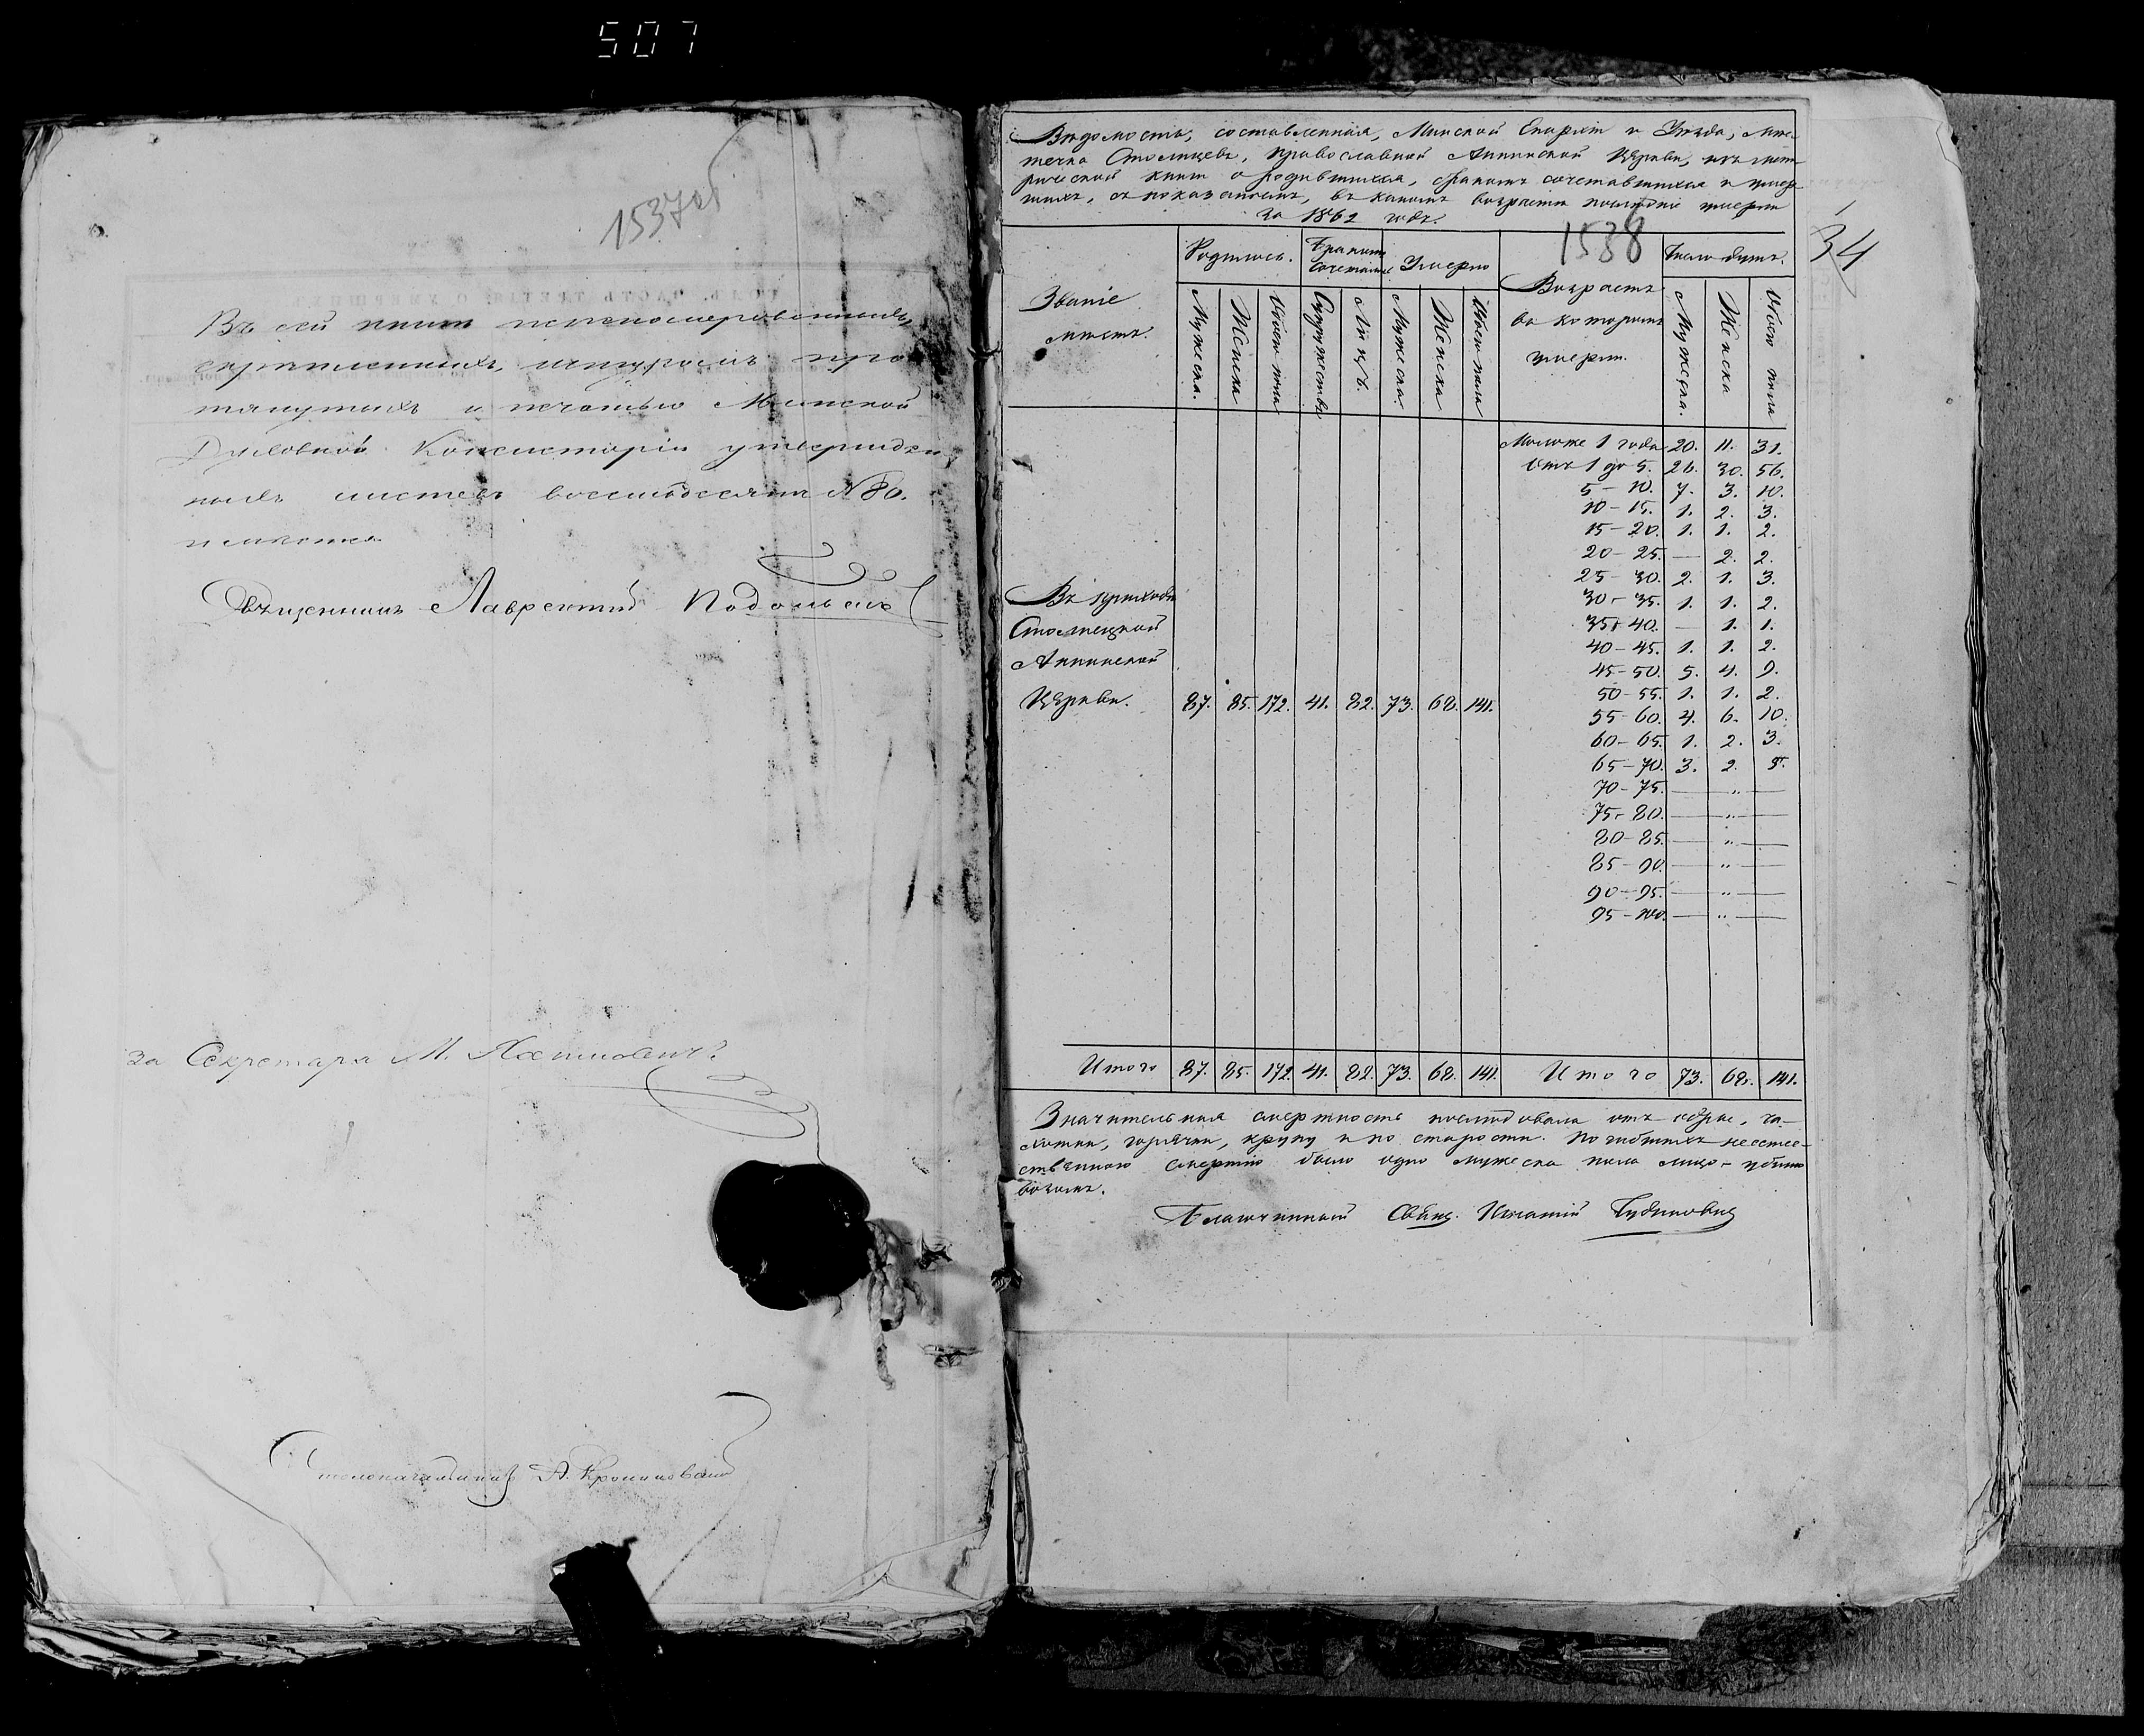 507
1537об
Въ сей книгѣ перенумерованныхъ,
скрѣпленныхъ, шнуромъ про-
тянутыхъ и печатью Минской
Духовной Консисторіи утвержден-
ныхъ листовъ восемьдесятъ №80.
Священникъ Лаврентій Подольскій
За Секретаря М.
Столоначальникъ А.
Вѣдомость, составленная, Минской Епархіи и Уѣзда, мѣс-
течка Столпцевъ, православной Аннинской Церкви, изъ мет-
рической книги о родившихся, бракомъ сочетавшихся и умер-
шихъ, съ показаніемъ, въ какомъ возрастѣ послѣдніе умерли
за 1862 годъ.
1538
34
Званіе мѣстъ.
Родилось. Бракомъ сочетаніе Умерло Возрастъ въ которомъ умерли. Число душъ.
Мужеска. Женска Обоего пола Супружествъ Лицъ. Мужеска. Женска Обоего пола Мужеска. Женска Обоего пола
Моложе 1 года 20. 11. 31.
Отъ 1 до 5. 26. 30. 56.
5–10. 7. 3. 10.
10–15. 1. 2. 3.
15–20. 1. 1. 2.
20–25. — 2. 2.
25–30. 2. 1. 3.
30–35. 1. 1. 2.
35–40. — 1. 1.
40–45. 1. 1. 2.
45–50. 5. 4. 9.
50–55. 1. 1. 2.
55–60. 4. 6. 10.
60–65. 1. 2. 3.
65–70. 3. 2. 5.
70–75. — „ —
75–80. — „ —
80–85. — „ —
85–90. — „ —
90–95. — „ —
95–100. — „ —
Въ приходѣ
Столпецкой
Аннинской
Церкви. 87. 85. 172. 41. 82. 73. 68. 141.
Итого 87. 85. 172. 41. 82. 73. 68. 141. Итого 73. 68. 141.
Значительная смертность послѣдовала отъ кори, ча-
хотки, горячки, крупу и по старости. Погибшихъ неестес-
ственною смертію было одно мужеска пола лицо – убито
возомъ.
Благочинный Свящ. Игнатій